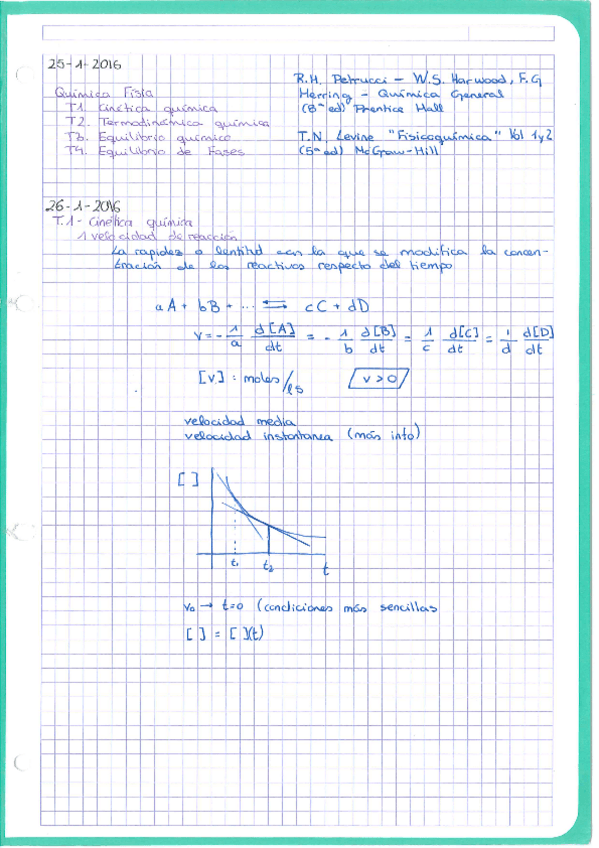 25-1-2016
R.H. Petrucci - W.S. Harwood, F.G
Herring - Química General
(8ª ed) Prentice Hall
Química Física
T1. Cinética química
T2. Termodinámica química
T3. Equilibrio químico
T4. Equilibrio de Fases
T.N. Levine "Fisicoquímica" Vol 1 y 2
(5ª ed) McGraw-Hill
26-1-2016
T.1- Cinética química
1 velocidad de reacción
La rapidez o lentitud con la que se modifica la concen-
tración de los reactivos respecto del tiempo
aA + bB + ... ⇌ cC + dD
v = - 1/a d[A]/dt = - 1/b d[B]/dt = 1/c d[C]/dt = 1/d d[D]/dt
[v] = moles/ls v>0
velocidad media
velocidad instantanea (más info)
[ ]
t₁ t₂ t
v₀ → t=0 (condiciones más sencillas
[ ] = [ ](t)